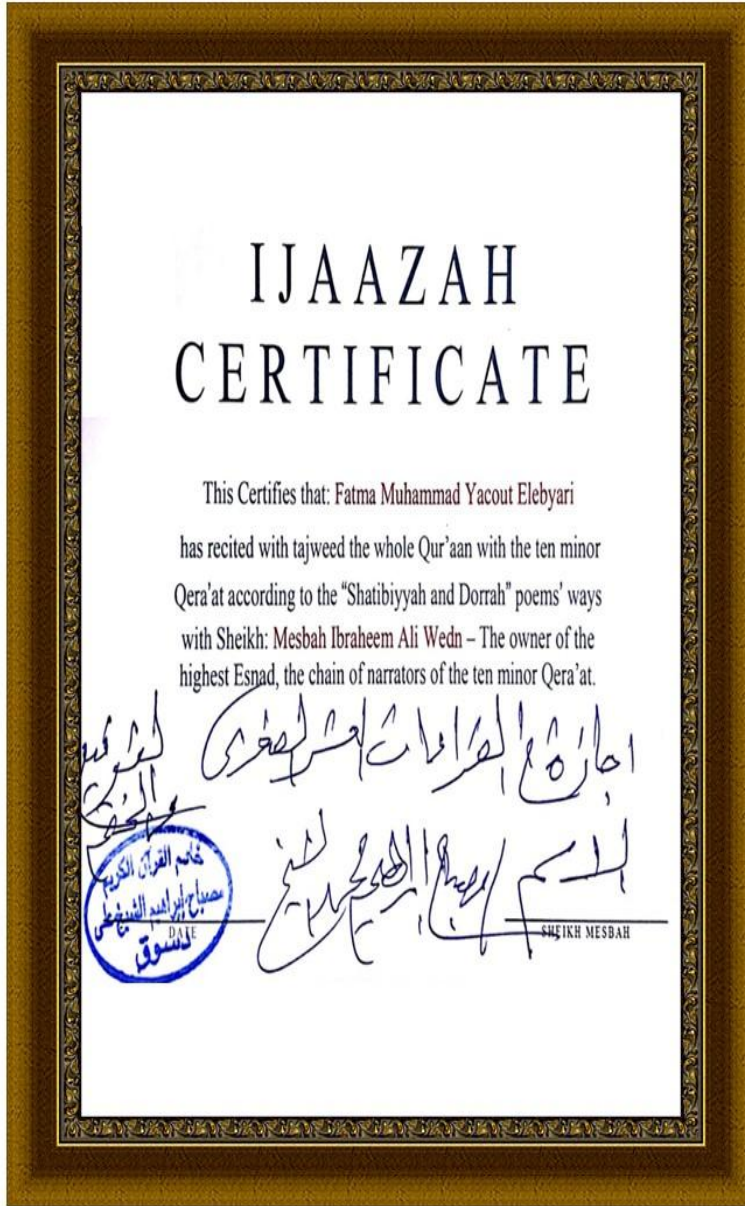 IJAAZAH
CERTIFICATE
This Certifies that: Fatma Muhammad Yacout Elebyari
has recited with tajweed the whole Qur'aan with the ten minor
Qera'at according to the “Shatibiyyah and Dorrah” poems' ways
with Sheikh: Mesbah Ibraheem Ali Wedn – The owner of the
highest Esnad, the chain of narrators of the ten minor Qera'at.
اجازة في القراءات العشر الصغرى
الاسم مصباح ابراهيم
خاتم القرآن الكريم
مصباح إبراهيم الشيخ علي
دسوق
DATE
SHEIKH MESBAH